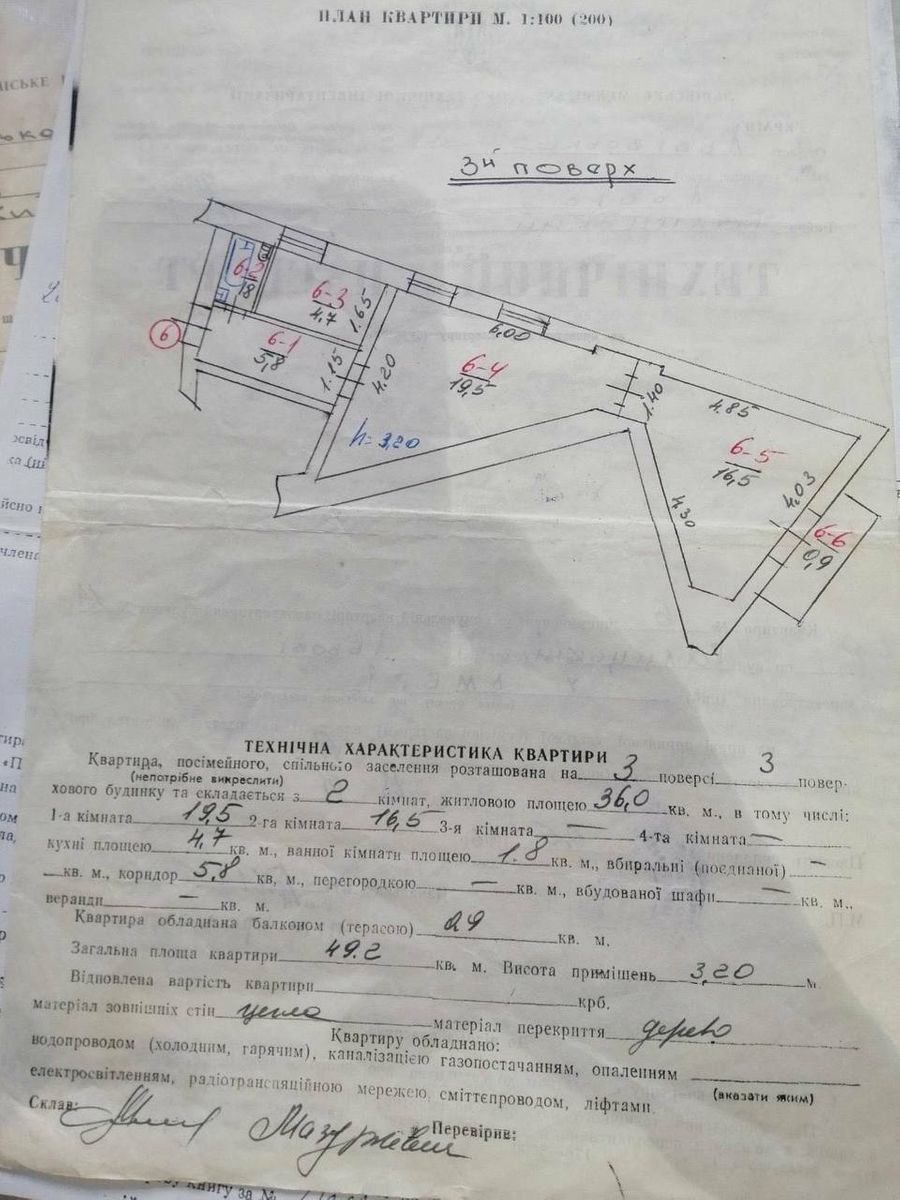 ПЛАН КВАРТИРИ М. 1:100 (200)
3й поверх
6-2
1.8
6-3
4.7
1.65
6
6-1
5,8
1.15
4.20
6,00
6-4
19,5
h=3,20
1.40
4.85
6-5
16,5
4.03
4.30
6-6
0,9
ТЕХНІЧНА ХАРАКТЕРИСТИКА КВАРТИРИ
Квартира, посімейного, спільного заселення розташована на 3 поверсі 3 повер-
(непотрібне викреслити)
хового будинку та складається з 2 кімнат, житловою площею 36,0 кв. м., в тому числі:
1-а кімната 19,5 2-га кімната 16,5 3-я кімната — 4-та кімната —
кухні площею 4,7 кв. м., ванної кімнати площею 1.8 кв. м., вбиральні (поєднаної) —
кв. м., коридор 5,8 кв, м., перегородкою — кв. м., вбудованої шафи — кв. м.,
веранди — кв. м.
Квартира обладнана балконом (терасою) 0,9 кв. м.
Загальна площа квартири 49.2 кв. м. Висота приміщень 3,20 м.
Відновлена вартість квартири крб.
матеріал зовнішніх стін цегла матеріал перекриття дерево
Квартиру обладнано:
водопроводом (холодним, гарячим), каналізацією газопостачанням, опаленням
(вказати яким)
електросвітленням, радіотрансляційною мережею, сміттєпроводом, ліфтами.
Склав: Перевірив: